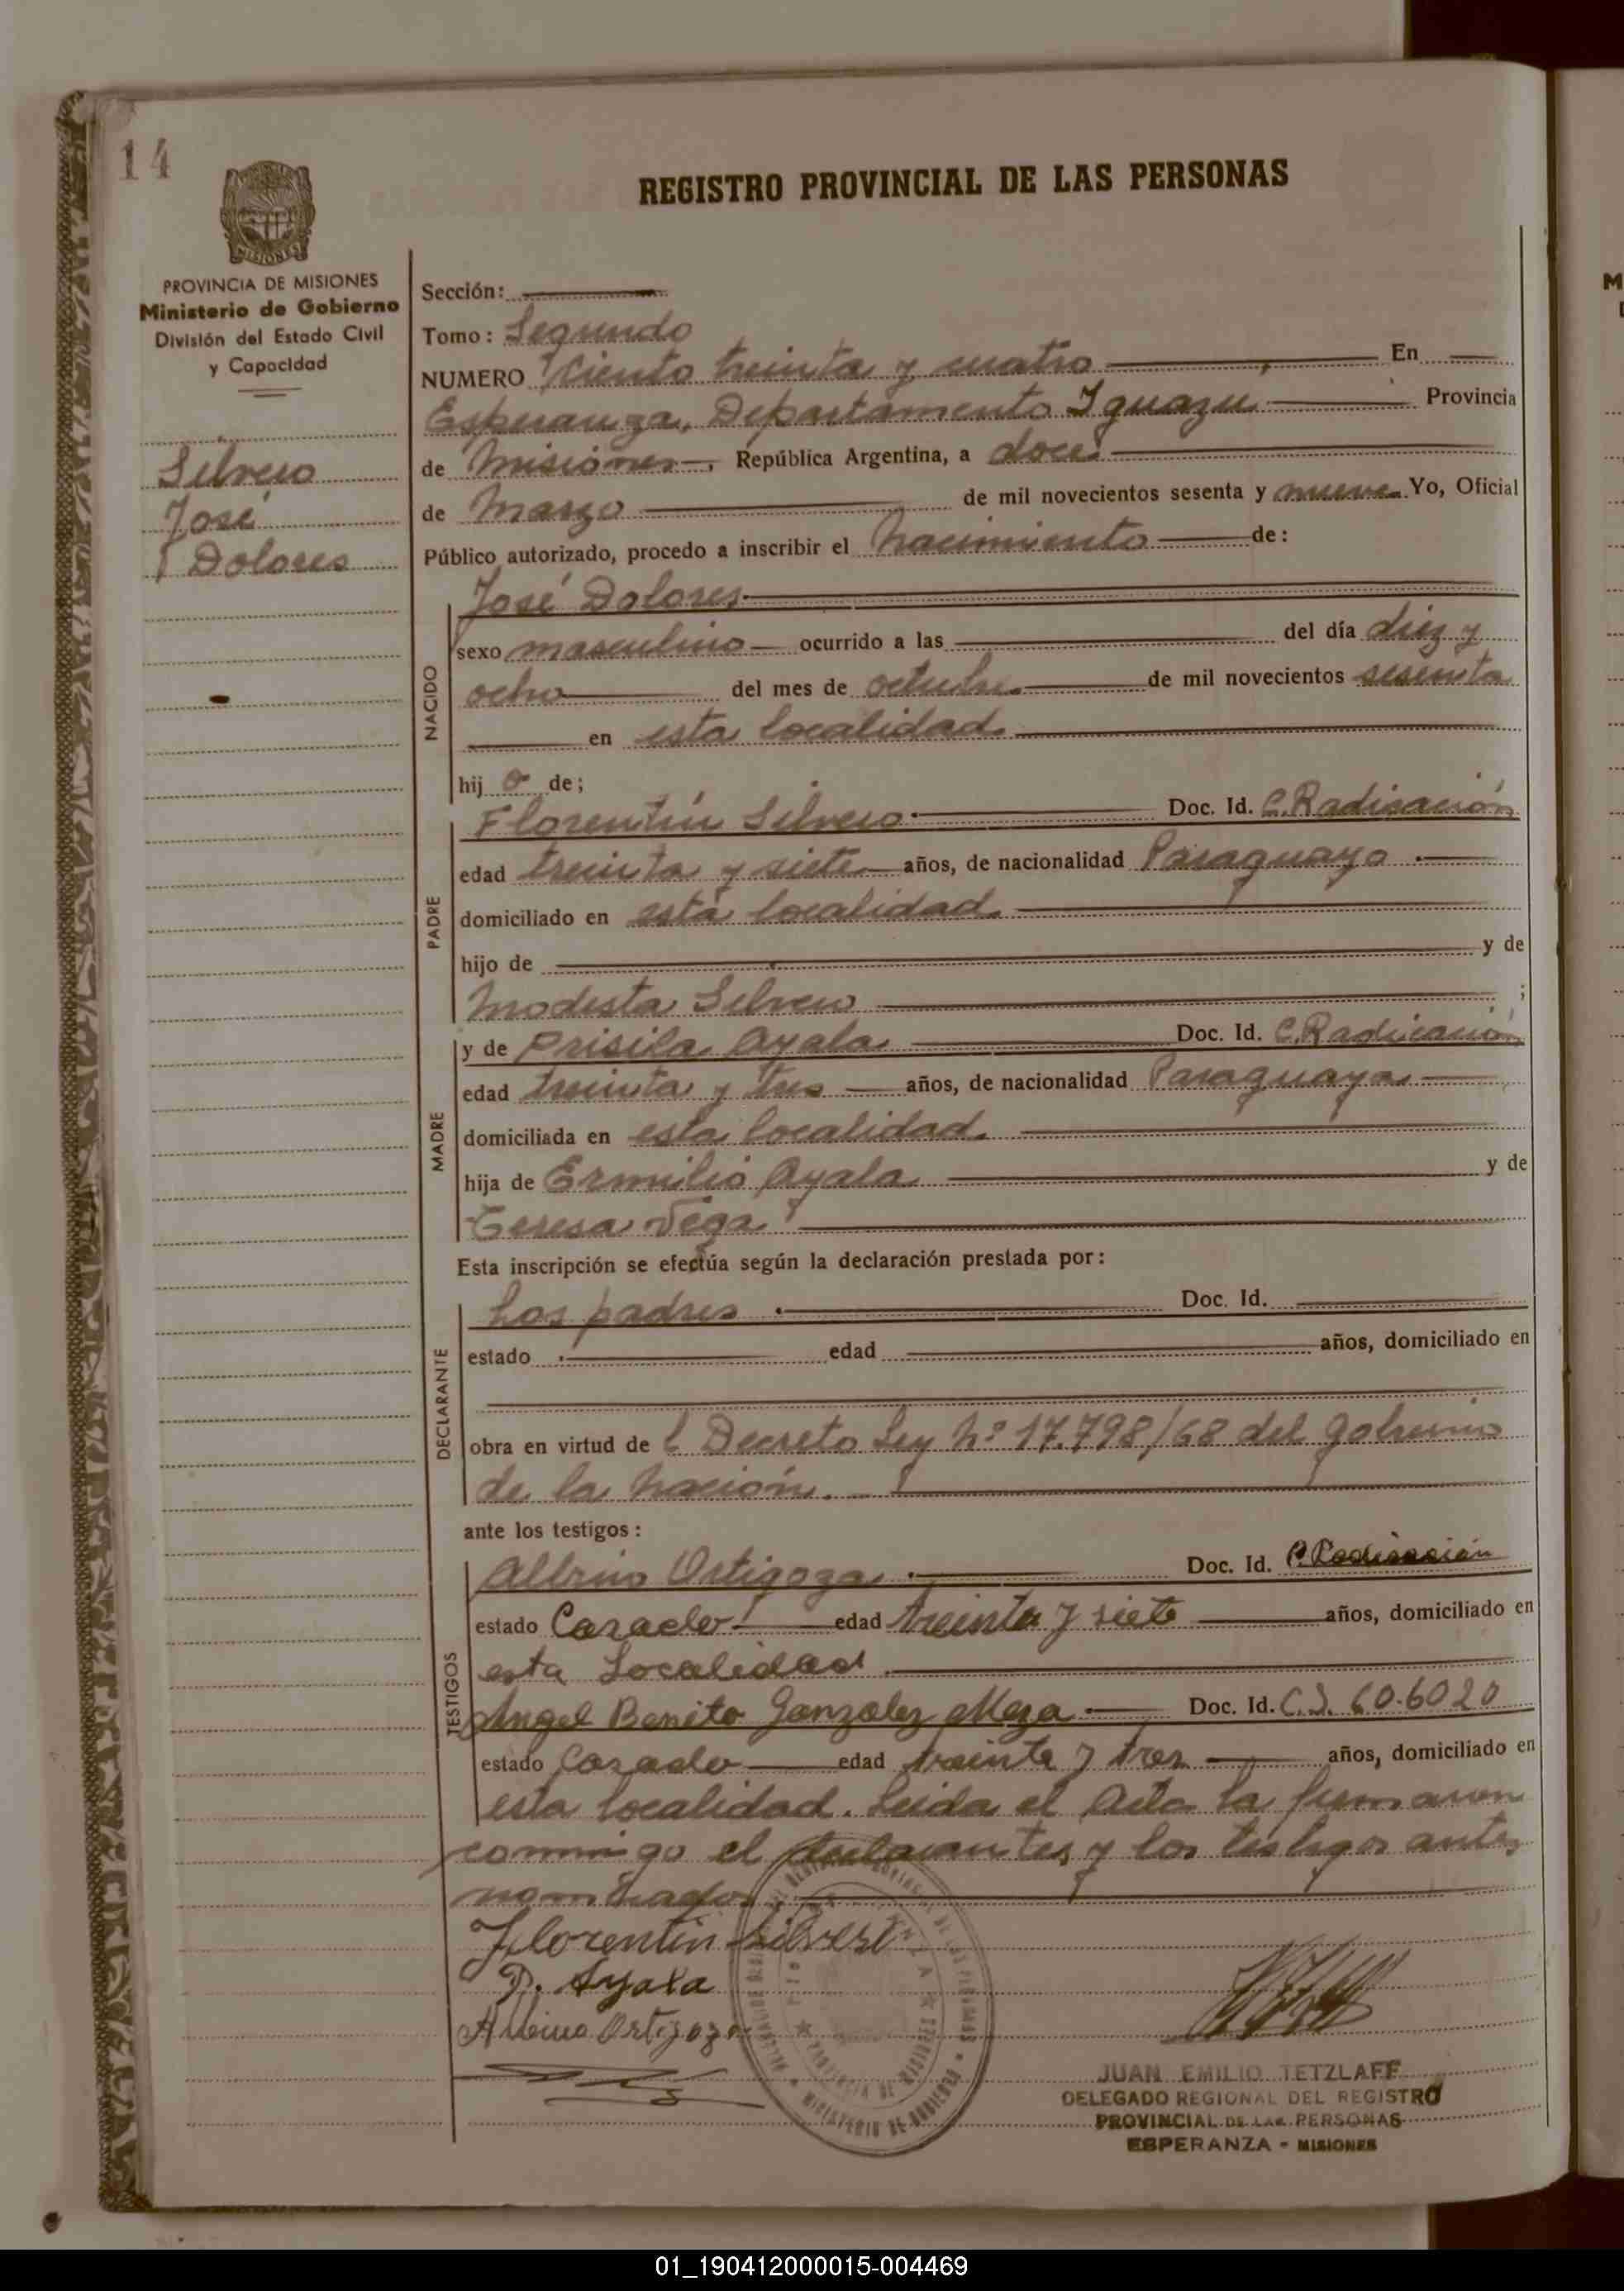 14
REGISTRO PROVINCIAL DE LAS PERSONAS
MISIONES
PROVINCIA DE MISIONES
Ministerio de Gobierno
División del Estado Civil
y Capacidad
Silvero
José
Dolores
Sección:
Tomo: Segundo
NUMERO Ciento treinta y cuatro En
Esperanza, Departamento Iguazu Provincia
de Misiones, República Argentina, a doce
de Marzo de mil novecientos sesenta y nueve Yo, Oficial
Público autorizado, procedo a inscribir el Nacimiento de:
NACIDO
José Dolores
sexo masculino ocurrido a las del día diez y
ocho del mes de octubre de mil novecientos sesenta
en esta localidad
hij o de;
PADRE
Florentín Silvero Doc. Id. C. Radicación
edad treinta y siete años, de nacionalidad Paraguayo
domiciliado en esta localidad
hijo de y de
Modesta Silvero ;
MADRE
y de Prisila Ayala Doc. Id. C. Radicación
edad treinta y tres años, de nacionalidad Paraguaya
domiciliada en esta localidad
hija de Ermilio Ayala y de
Teresa Vega
Esta inscripción se efectúa según la declaración prestada por:
DECLARANTE
Los padres Doc. Id.
estado edad años, domiciliado en
obra en virtud de l Decreto Ley Nº 17.798/68 del Gobierno
de la Nación.
ante los testigos:
TESTIGOS
Albino Ortigoza Doc. Id. C. Radicación
estado Casado edad treinta y siete años, domiciliado en
esta Localidad
Angel Benito Gonzalez Meza Doc. Id. C.I. 60.6020
estado Casado edad treinta y tres años, domiciliado en
esta localidad. Leida el Acta la firmaron
conmigo el declarantes y los testigos antes
nombrados
Florentin Silvero
P. Ayala
Albino Ortigoza
JUAN EMILIO TETZLAFF
DELEGADO REGIONAL DEL REGISTRO
PROVINCIAL DE LAS PERSONAS
ESPERANZA - MISIONES
01_190412000015-004469